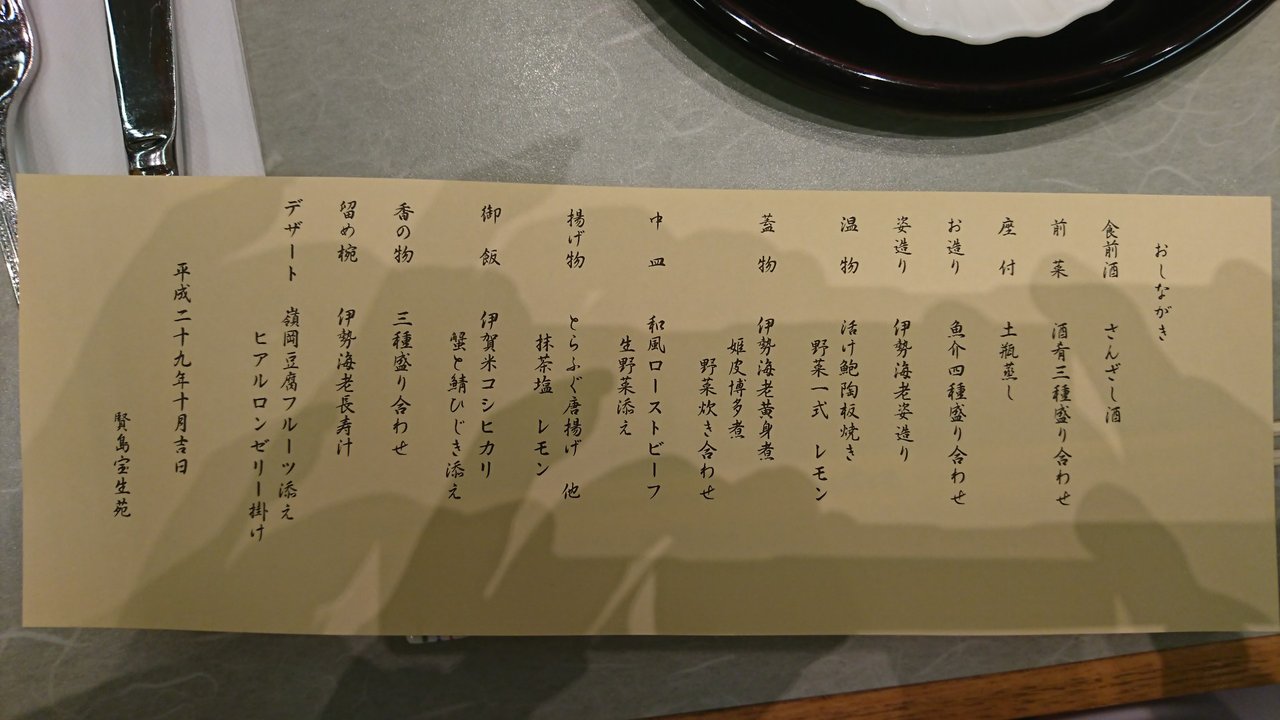 おしながき
食前酒 さんざし酒
前菜 酒肴三種盛り合わせ
座付 土瓶蒸し
お造り 魚介四種盛り合わせ
姿造り 伊勢海老姿造り
温物 活け鮑陶板焼き
野菜一式 レモン
蓋物 伊勢海老黄身煮
姫皮博多煮
野菜炊き合わせ
中皿 和風ローストビーフ
生野菜添え
揚げ物 とらふぐ唐揚げ 他
抹茶塩 レモン
御飯 伊賀米コシヒカリ
蟹と鯖ひじき添え
香の物 三種盛り合わせ
留め椀 伊勢海老長寿汁
デザート 嶺岡豆腐フルーツ添え
ヒアルロンゼリー掛け
平成二十九年十月吉日
賢島宝生苑